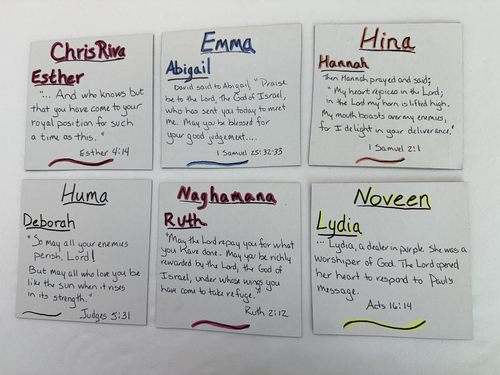 ChrisRiva
Esther
"... And who knows but
that you have come to your
royal position for such
a time as this."
Esther 4:14
Emma
Abigail
David said to Abigail, "Praise
be to the Lord, the God of Israel,
who has sent you today to meet
me. May you be blessed for
your good judgement....
1 Samuel 25:32-33
Hina
Hannah
Then Hannah prayed and said;
"My heart rejoices in the Lord;
in the Lord my horn is lifted high.
My mouth boasts over my enemies,
for I delight in your deliverance."
1 Samuel 2:1
Huma
Deborah
"So may all your enemies
perish, Lord!
But may all who love you be
like the sun when it rises
in its strength."
Judges 5:31
Naghamana
Ruth
"May the Lord repay you for what
you have done. May you be richly
rewarded by the Lord, the God of
Israel, under whose wings you
have come to take refuge."
Ruth 2:12
Noveen
Lydia
... Lydia, a dealer in purple. She was a
worshiper of God. The Lord opened
her heart to respond to Paul's
message.
Acts 16:14